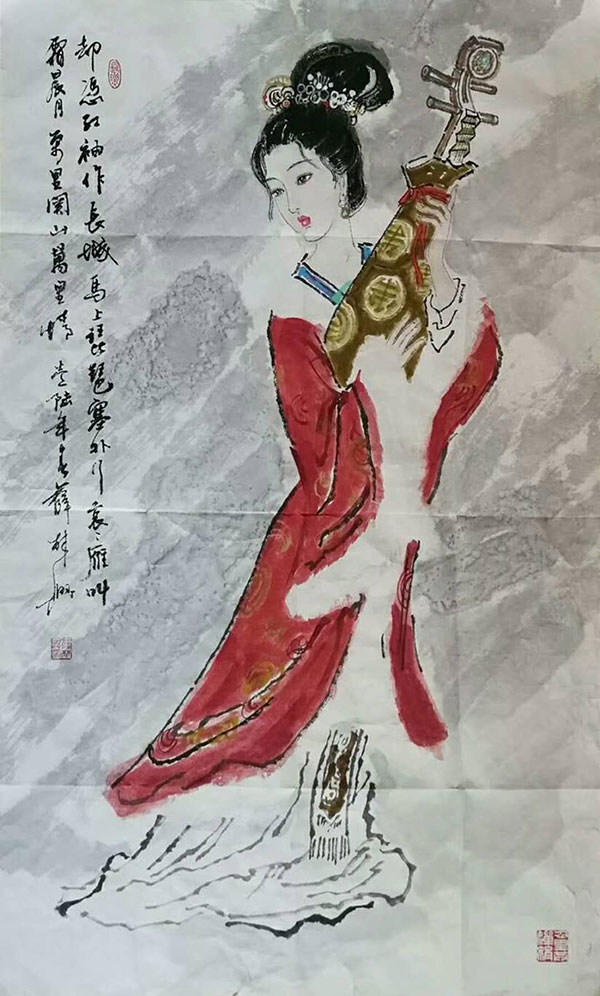 却憑红袖作長城馬上琵琶塞外行哀〻雁叫
霜晨月萬里関山萬里情 壹陆年春薛林興